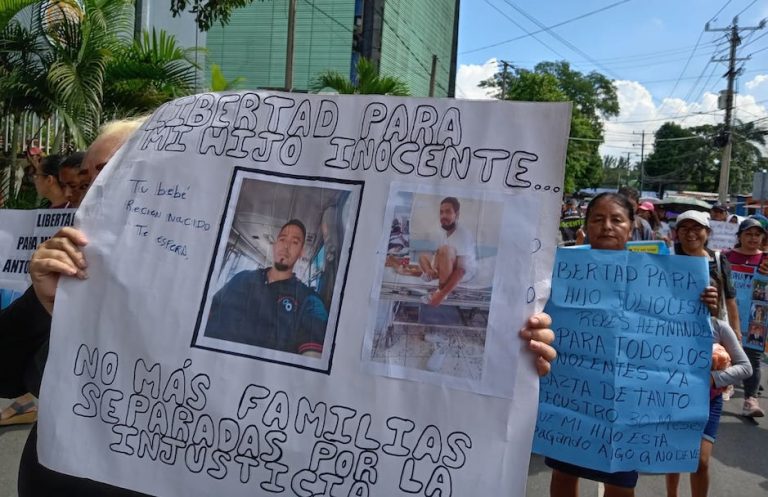 LIBERTAD PARA
MI HIJO INOCENTE...
Tu bebé
Recien nacido
Te espera.
NO MÁS FAMILIAS
SEPARADAS POR LA
INJUSTICIA
LIBERTAD
PARA
ANTO
LIBERTAD PARA
HIJO JULIOCESAR
REYES HERNAND
PARA TODOS LOS
NOCENTES YA
BAZTA DE TANTO
ECUSTRO 30 MESES
QUE MI HIJO ESTA
Pagando Algo Q NO DEVE